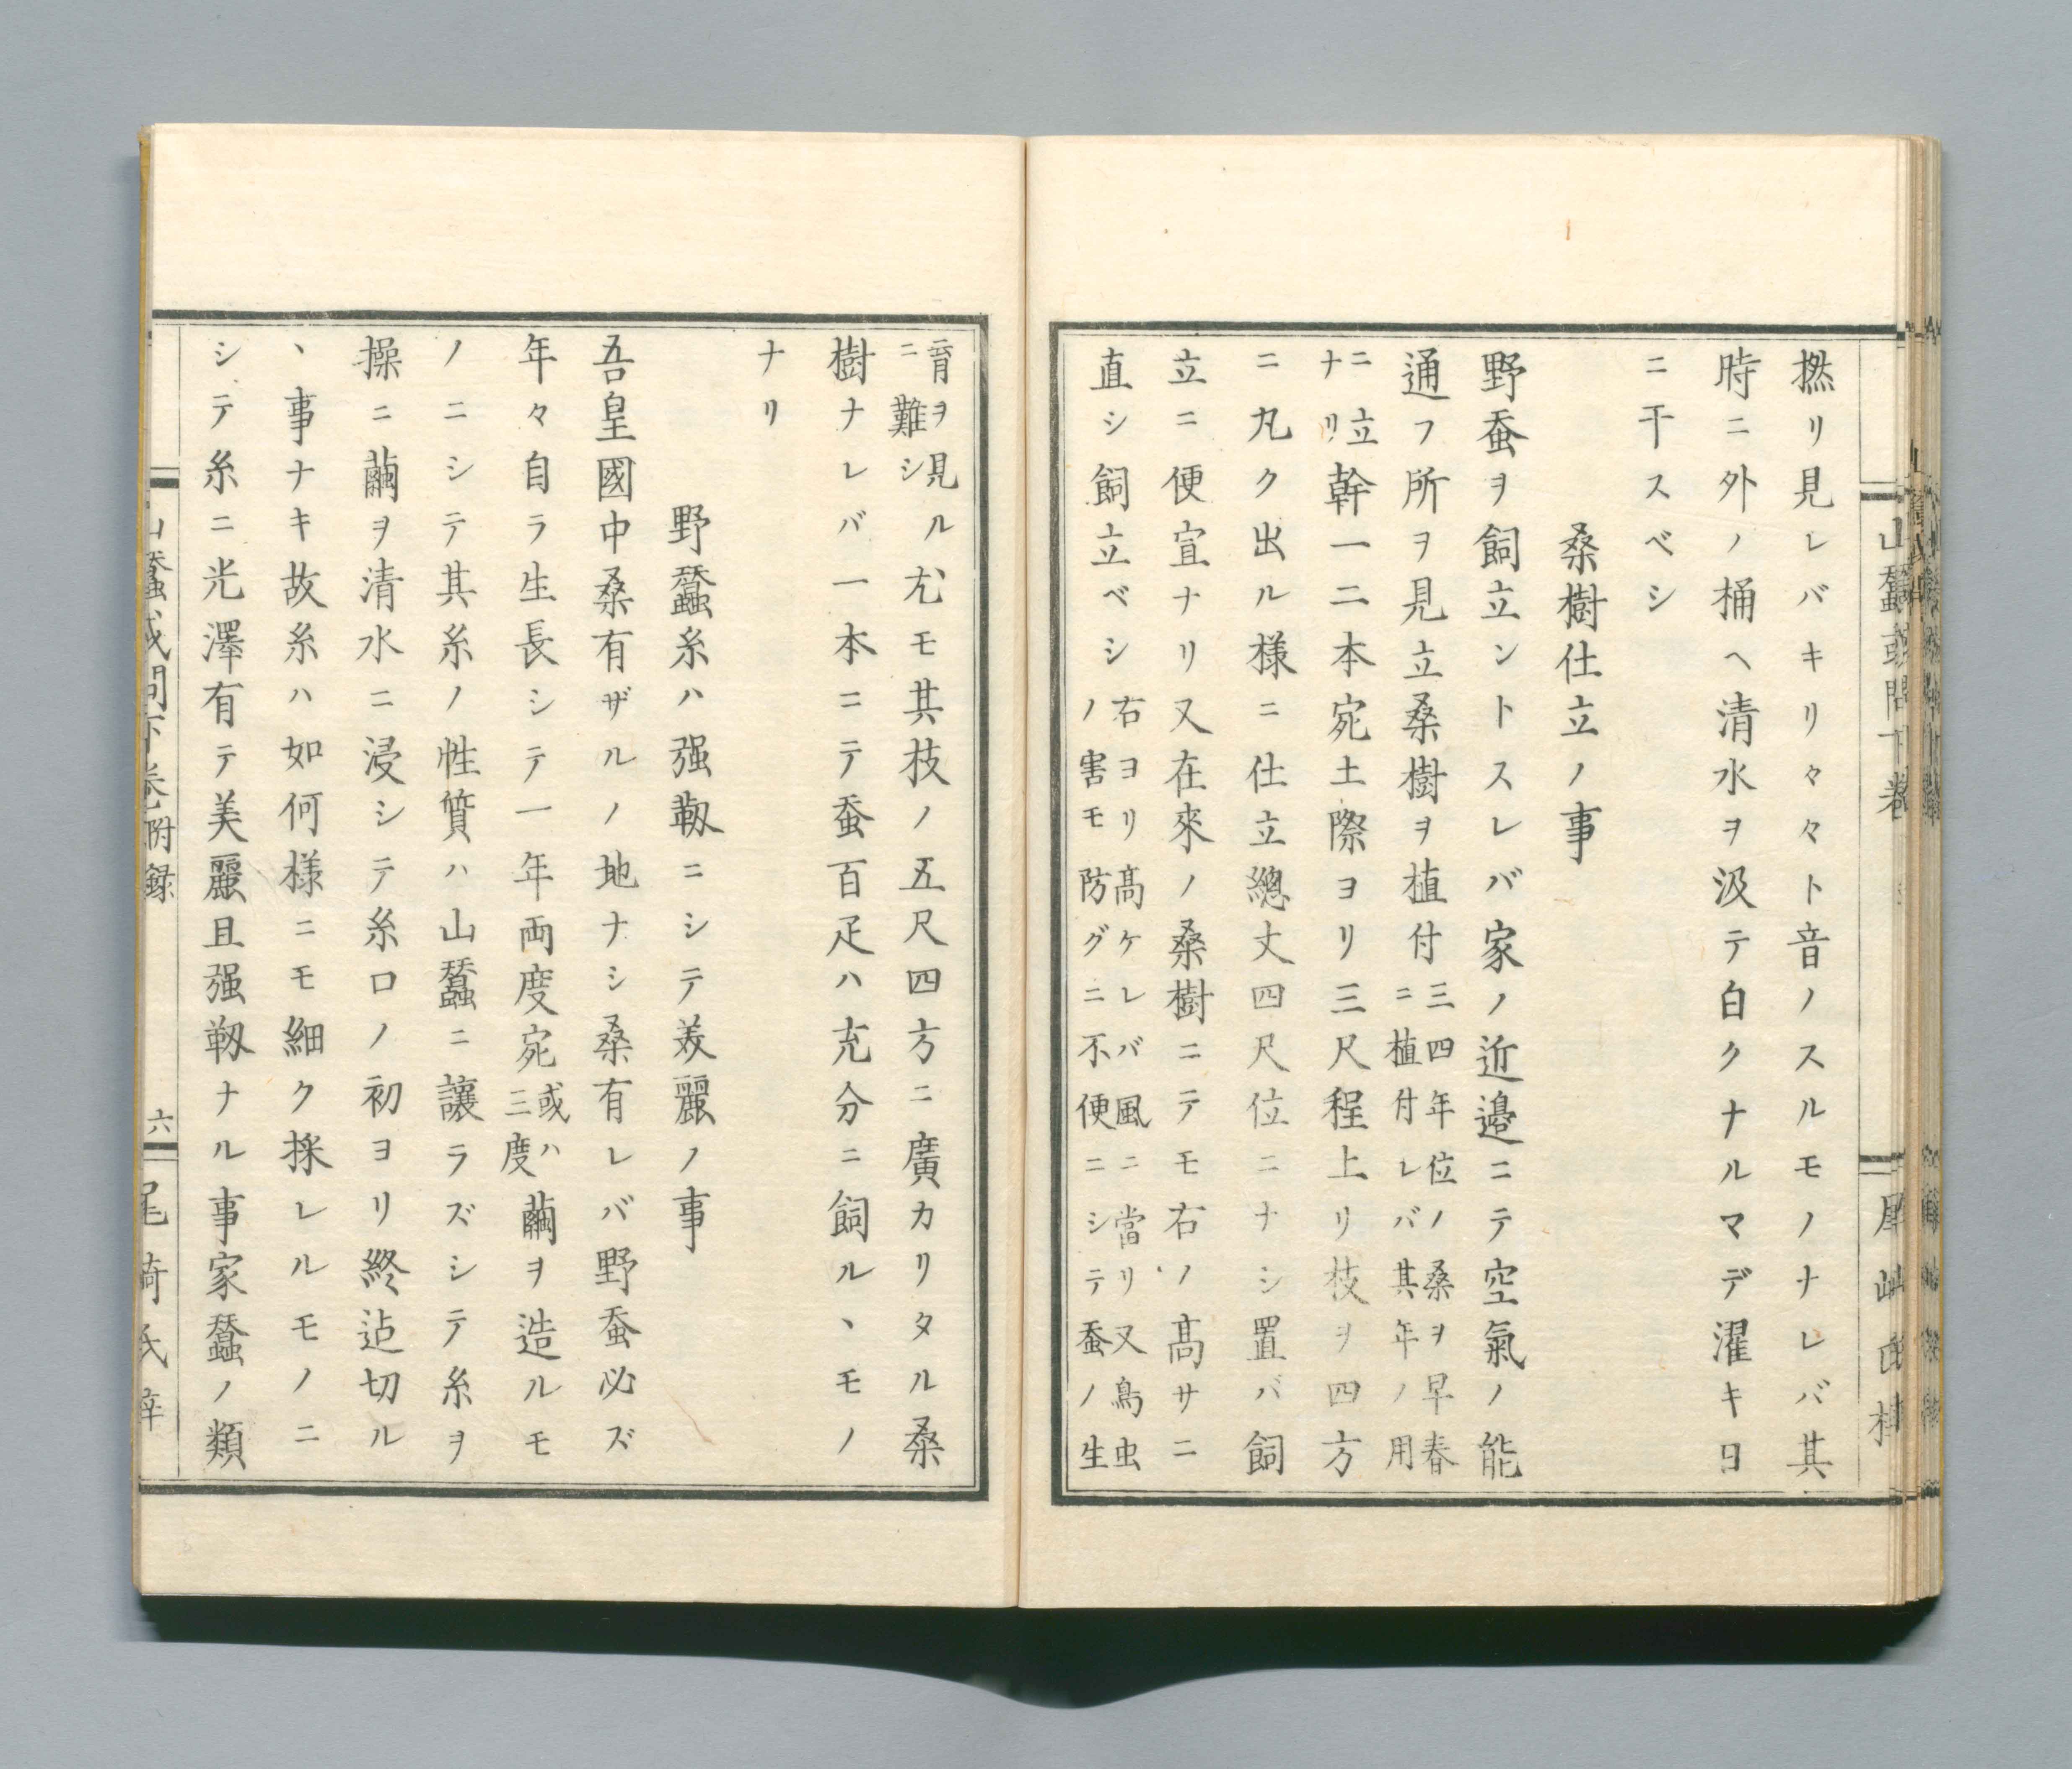 撚リ見レバキリ々々ト音ノスルモノナレバ其
時ニ外ノ桶ヘ清水ヲ汲テ白クナルマデ濯キ日
ニ干スベシ
桑樹仕立ノ事
野蚕ヲ飼立ントスレバ家ノ近邉ニテ空氣ノ能
通フ所ヲ見立桑樹ヲ植付三四年位ノ桑ヲ早春ニ植付レバ其年ノ用
ニ立ナリ幹一二本宛土際ヨリ三尺程上リ枝ヲ四方
ニ丸ク出ル様ニ仕立總丈四尺位ニナシ置バ飼
立ニ便宜ナリ又在來ノ桑樹ニテモ右ノ髙サニ
直シ飼立ベシ右ヨリ髙ケレバ風ニ當リ又鳥虫ノ害モ防グニ不便ニシテ蚕ノ生
育ヲ見ルニ難シ尤モ其枝ノ五尺四方ニ廣カリタル桑
樹ナレバ一本ニテ蚕百疋ハ充分ニ飼ル丶モノ
ナリ
野蠶糸ハ强靱ニシテ美麗ノ事
吾皇國中桑有ザルノ地ナシ桑有レバ野蚕必ズ
年々自ラ生長シテ一年両度宛或ハ三度繭ヲ造ルモ
ノニシテ其糸ノ性質ハ山蠶ニ讓ラズシテ糸ヲ
操ニ繭ヲ清水ニ浸シテ糸口ノ初ヨリ終迠切ル
丶事ナキ故糸ハ如何様ニモ細ク採レルモノニ
シテ糸ニ光澤有テ美麗且强靱ナル事家蠶ノ類
山蠶或問下巻附録
六
尾﨑氏梓